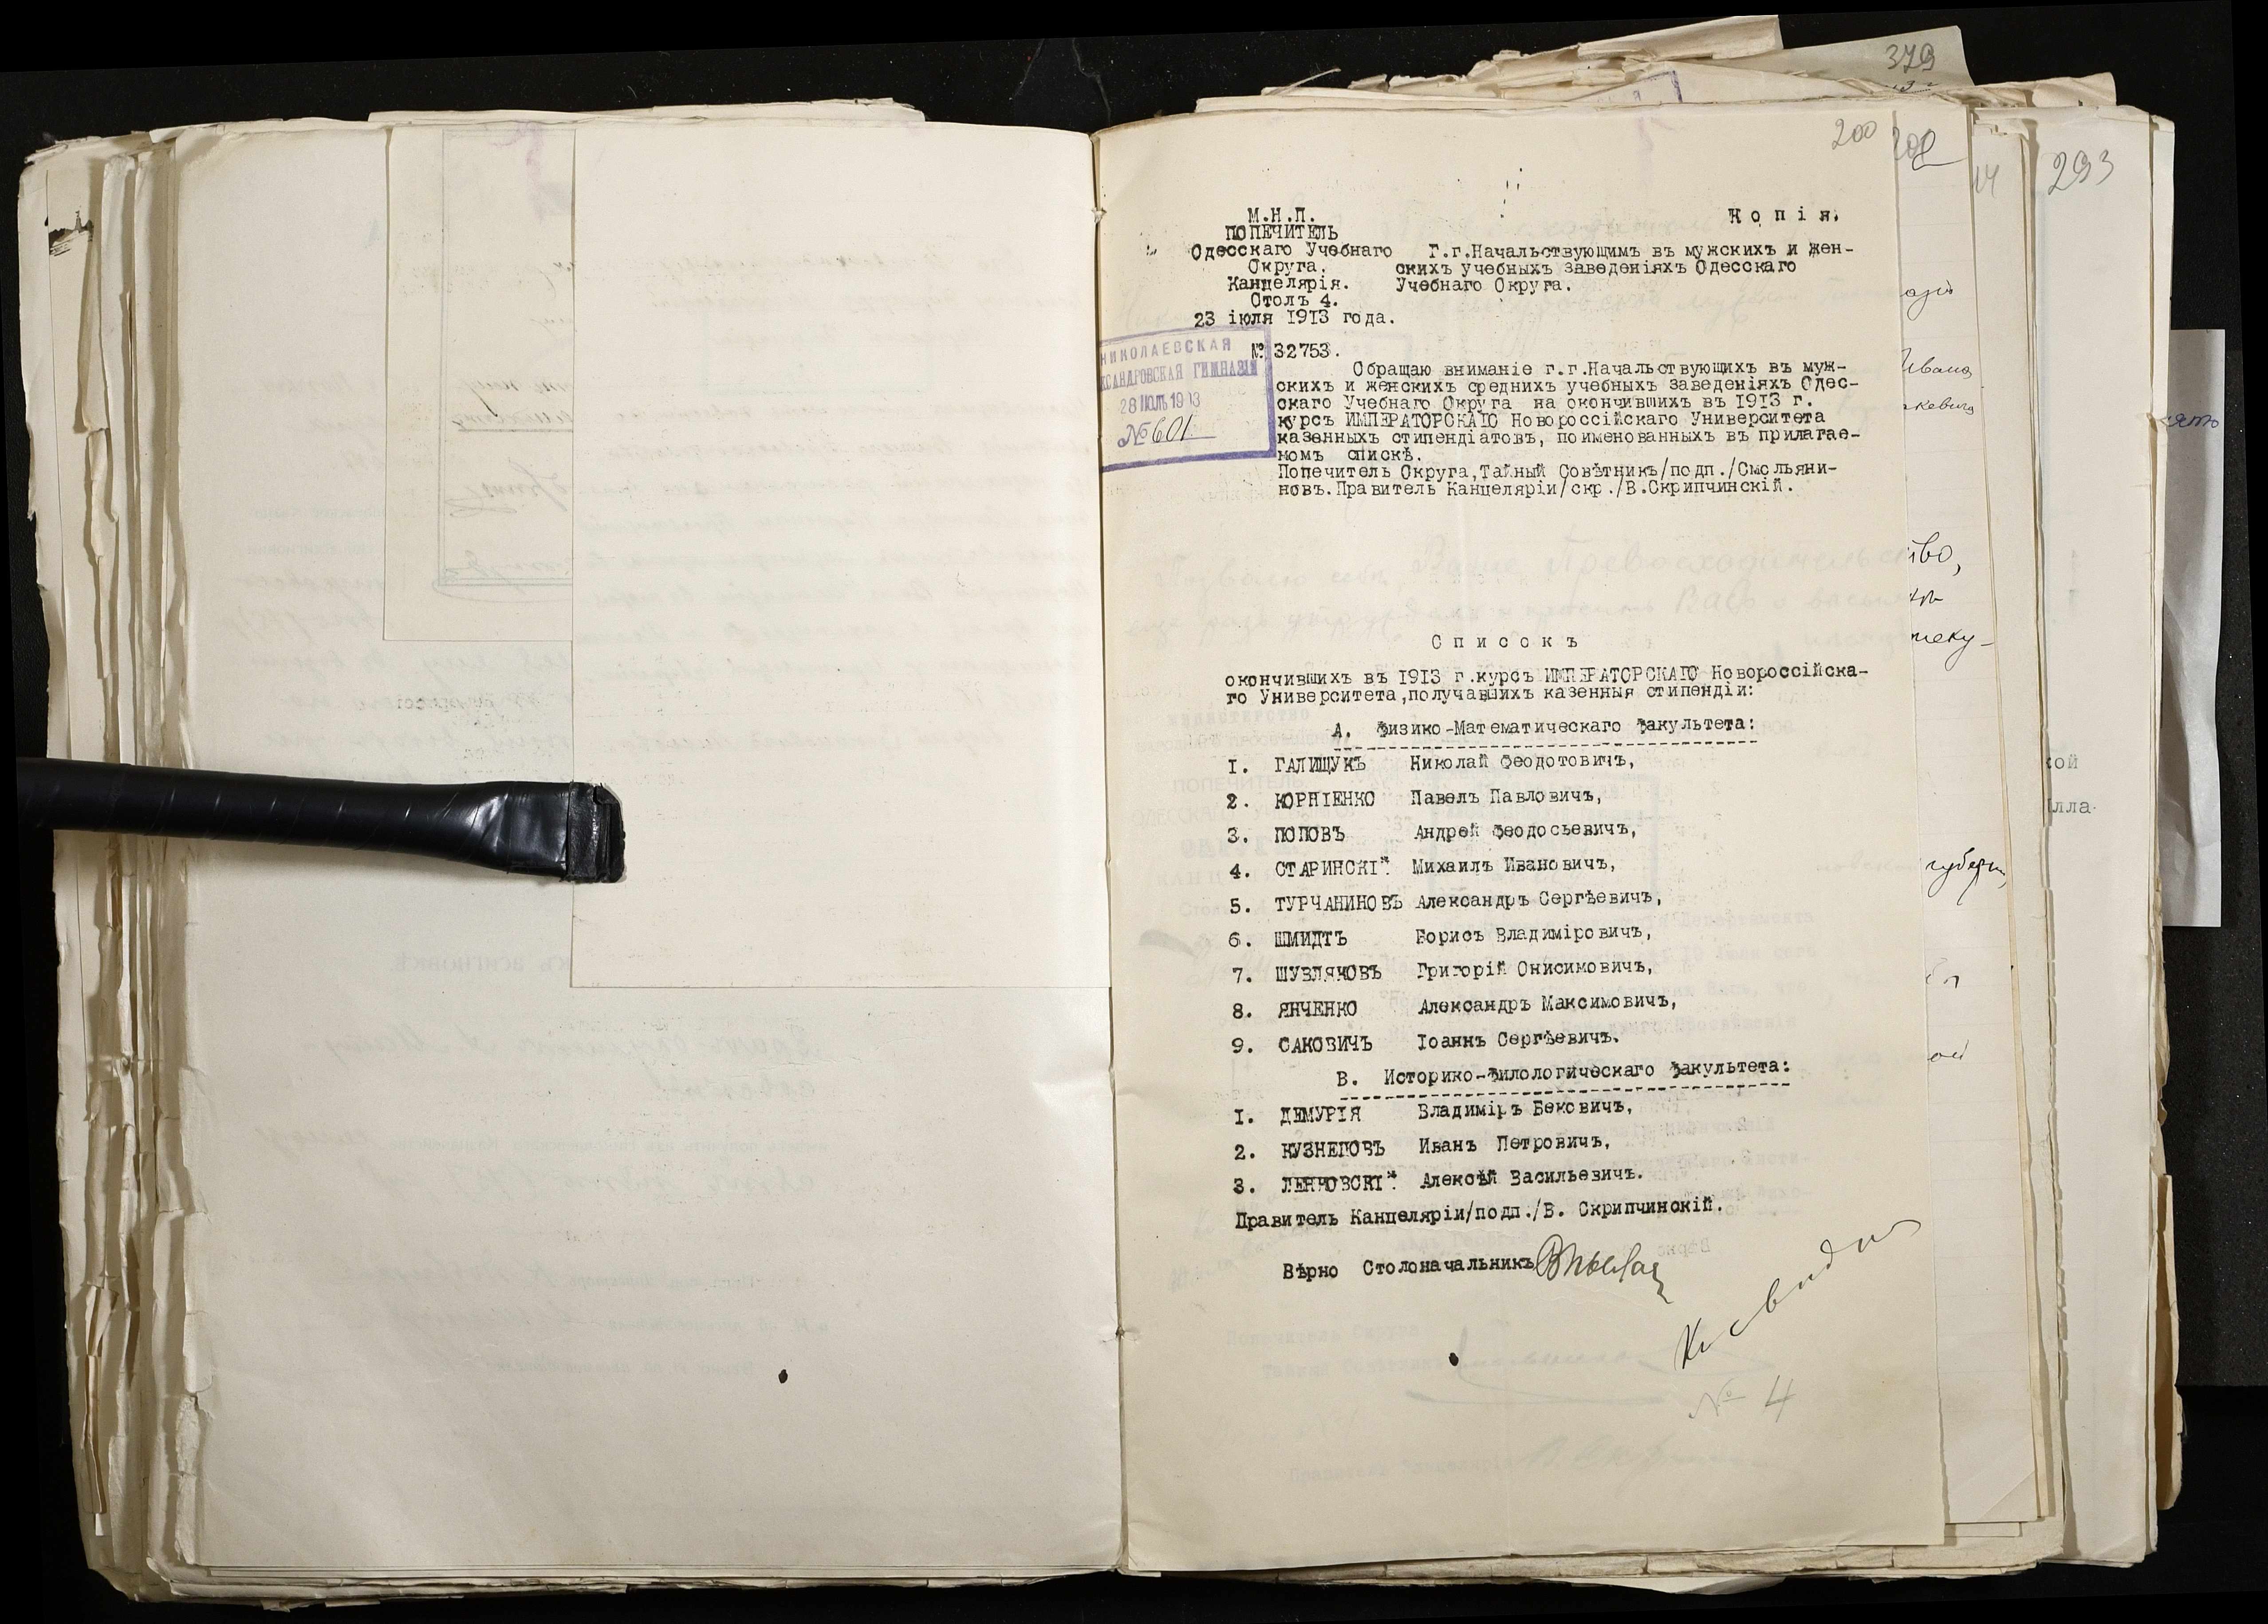 379
200
293
М.Н.П.
ПОПЕЧИТЕЛЬ
Одесскаго Учебнаго
Округа.
Канцелярія.
Столъ 4.
23 іюля 1913 года.
№ 32753.
Копія.
Г.г.Начальствующимъ въ мужскихъ и жен-
скихъ учебныхъ заведеніяхъ Одесскаго
Учебнаго Округа.
НИКОЛАЕВСКАЯ
КСАНДРОВСКАЯ ГИМНАЗІЯ
28 ІЮЛ 1913
№ 601
Обращаю вниманіе г.г.Начальствующихъ въ муж-
скихъ и женскихъ среднихъ учебныхъ заведеніяхъ Одес-
скаго Учебнаго Округа на окончившихъ въ 1913 г.
курсъ ИМПЕРАТОРСКАГО Новороссійскаго Университета
казенныхъ стипендіатовъ, поименованныхъ въ прилагае-
момъ спискѣ.
Попечитель Округа,Тайный Совѣтникъ/подп./Смольяни-
новъ.Правитель Канцеляріи/скр./В.Скрипчинскій.
Списокъ
окончившихъ въ 1913 г.курсъ ИМПЕРАТОРСКАГО Новороссійска-
го Университета,получавшихъ казенныя стипендіи:
А. Физико-Математическаго факультета:
1. ГАЛИЩУКЪ Николай Феодотовичъ,
2. КОРНІЕНКО Павелъ Павловичъ,
3. ПОПОВЪ Андрей Феодосьевичъ,
4. СТАРИНСКІЙ Михаилъ Ивановичъ,
5. ТУРЧАНИНОВЪ Александръ Сергѣевичъ,
6. ШМИДТЪ Борисъ Владиміровичъ,
7. ШУВЛЯКОВЪ Григорій Онисимовичъ,
8. ЯНЧЕНКО Александръ Максимовичъ,
9. САКОВИЧЪ Іоаннъ Сергѣевичъ.
В. Историко-Филологическаго факультета:
1. ДЕМУРІЯ Владиміръ Бековичъ,
2. КУЗНЕЦОВЪ Иванъ Петровичъ,
3. ЛЕНЧОВСКІЙ Алексѣй Васильевичъ.
Правитель Канцеляріи/подп./В. Скрипчинскій.
Вѣрно Столоначальникъ
№ 4